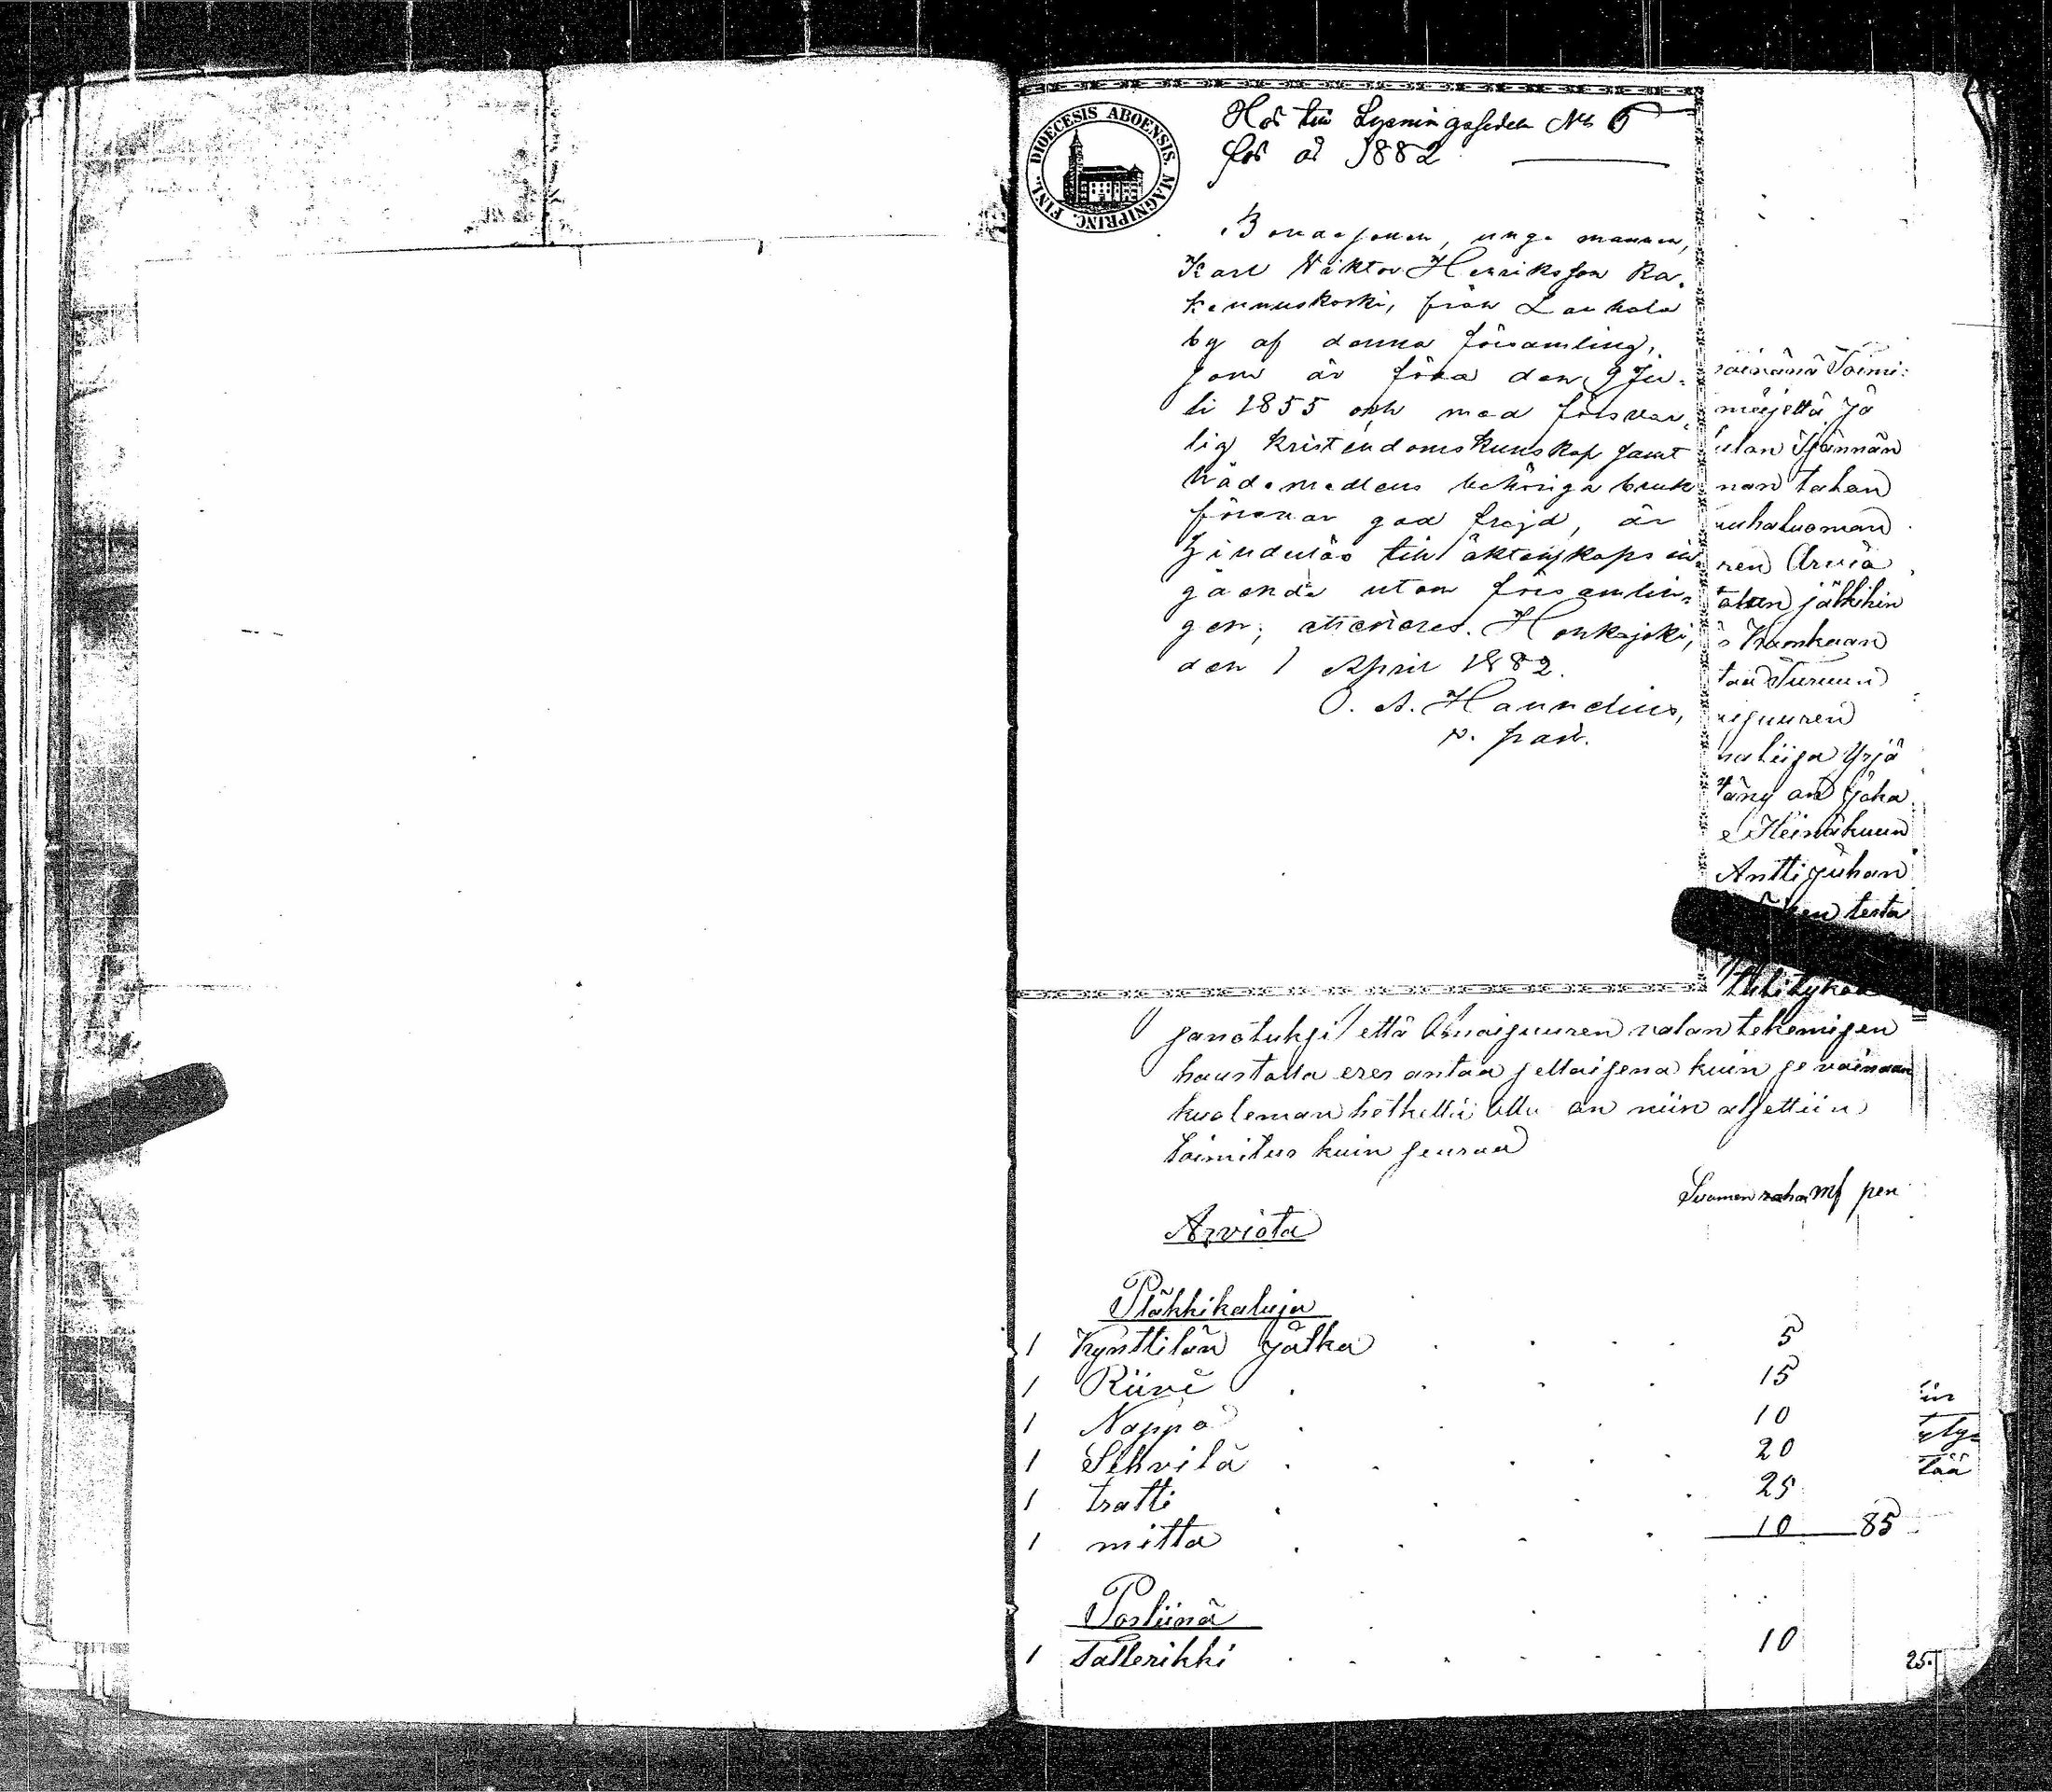 DIOECESIS ABOENSIS. MAGNIPRINC. FINL.
Hör till Lysningssedeln No 6
för år 1882
Bondesonen, unge mannen,
Karl Viktor Henriksson Ra-
kennuskoski, från Lauhala
by af denna församling,
som är född den 9 Ju-
li 1855 och med försvar-
lig kristendomskunskap samt
nådemedlens behöriga bruk
förenar god frejd, är
hinderlös till äktenskaps in-
gående utom församlin-
gen; attesteres. Honkajoki,
den 1 April 1882.
O. A. Hannelius,
v. past.
päinänä Toimi:
meijettä Jä
nan tahan
ren Arvia
jälkihin
taa Turuun
Yrjö
on joka
Heinäkuun
Antti Juhan
testa
sanotuksi että Omaisuuren valan tekemisen
haustalla eres antaa sellaisena kuin se vainaan
kuoleman hetkellä ollu on niin alsettiin
toimitus kuin seuraa
Suomen raha mk pen
Arviota
Pläkkikaluja
1 Kynttilän jalka 5
1 Riivi 15
1 Nappo 10
1 Sihvilä 20
1 tratti 25
1 mitta 10 85
Posliinä
1 Tallerikki 10
tää
25.